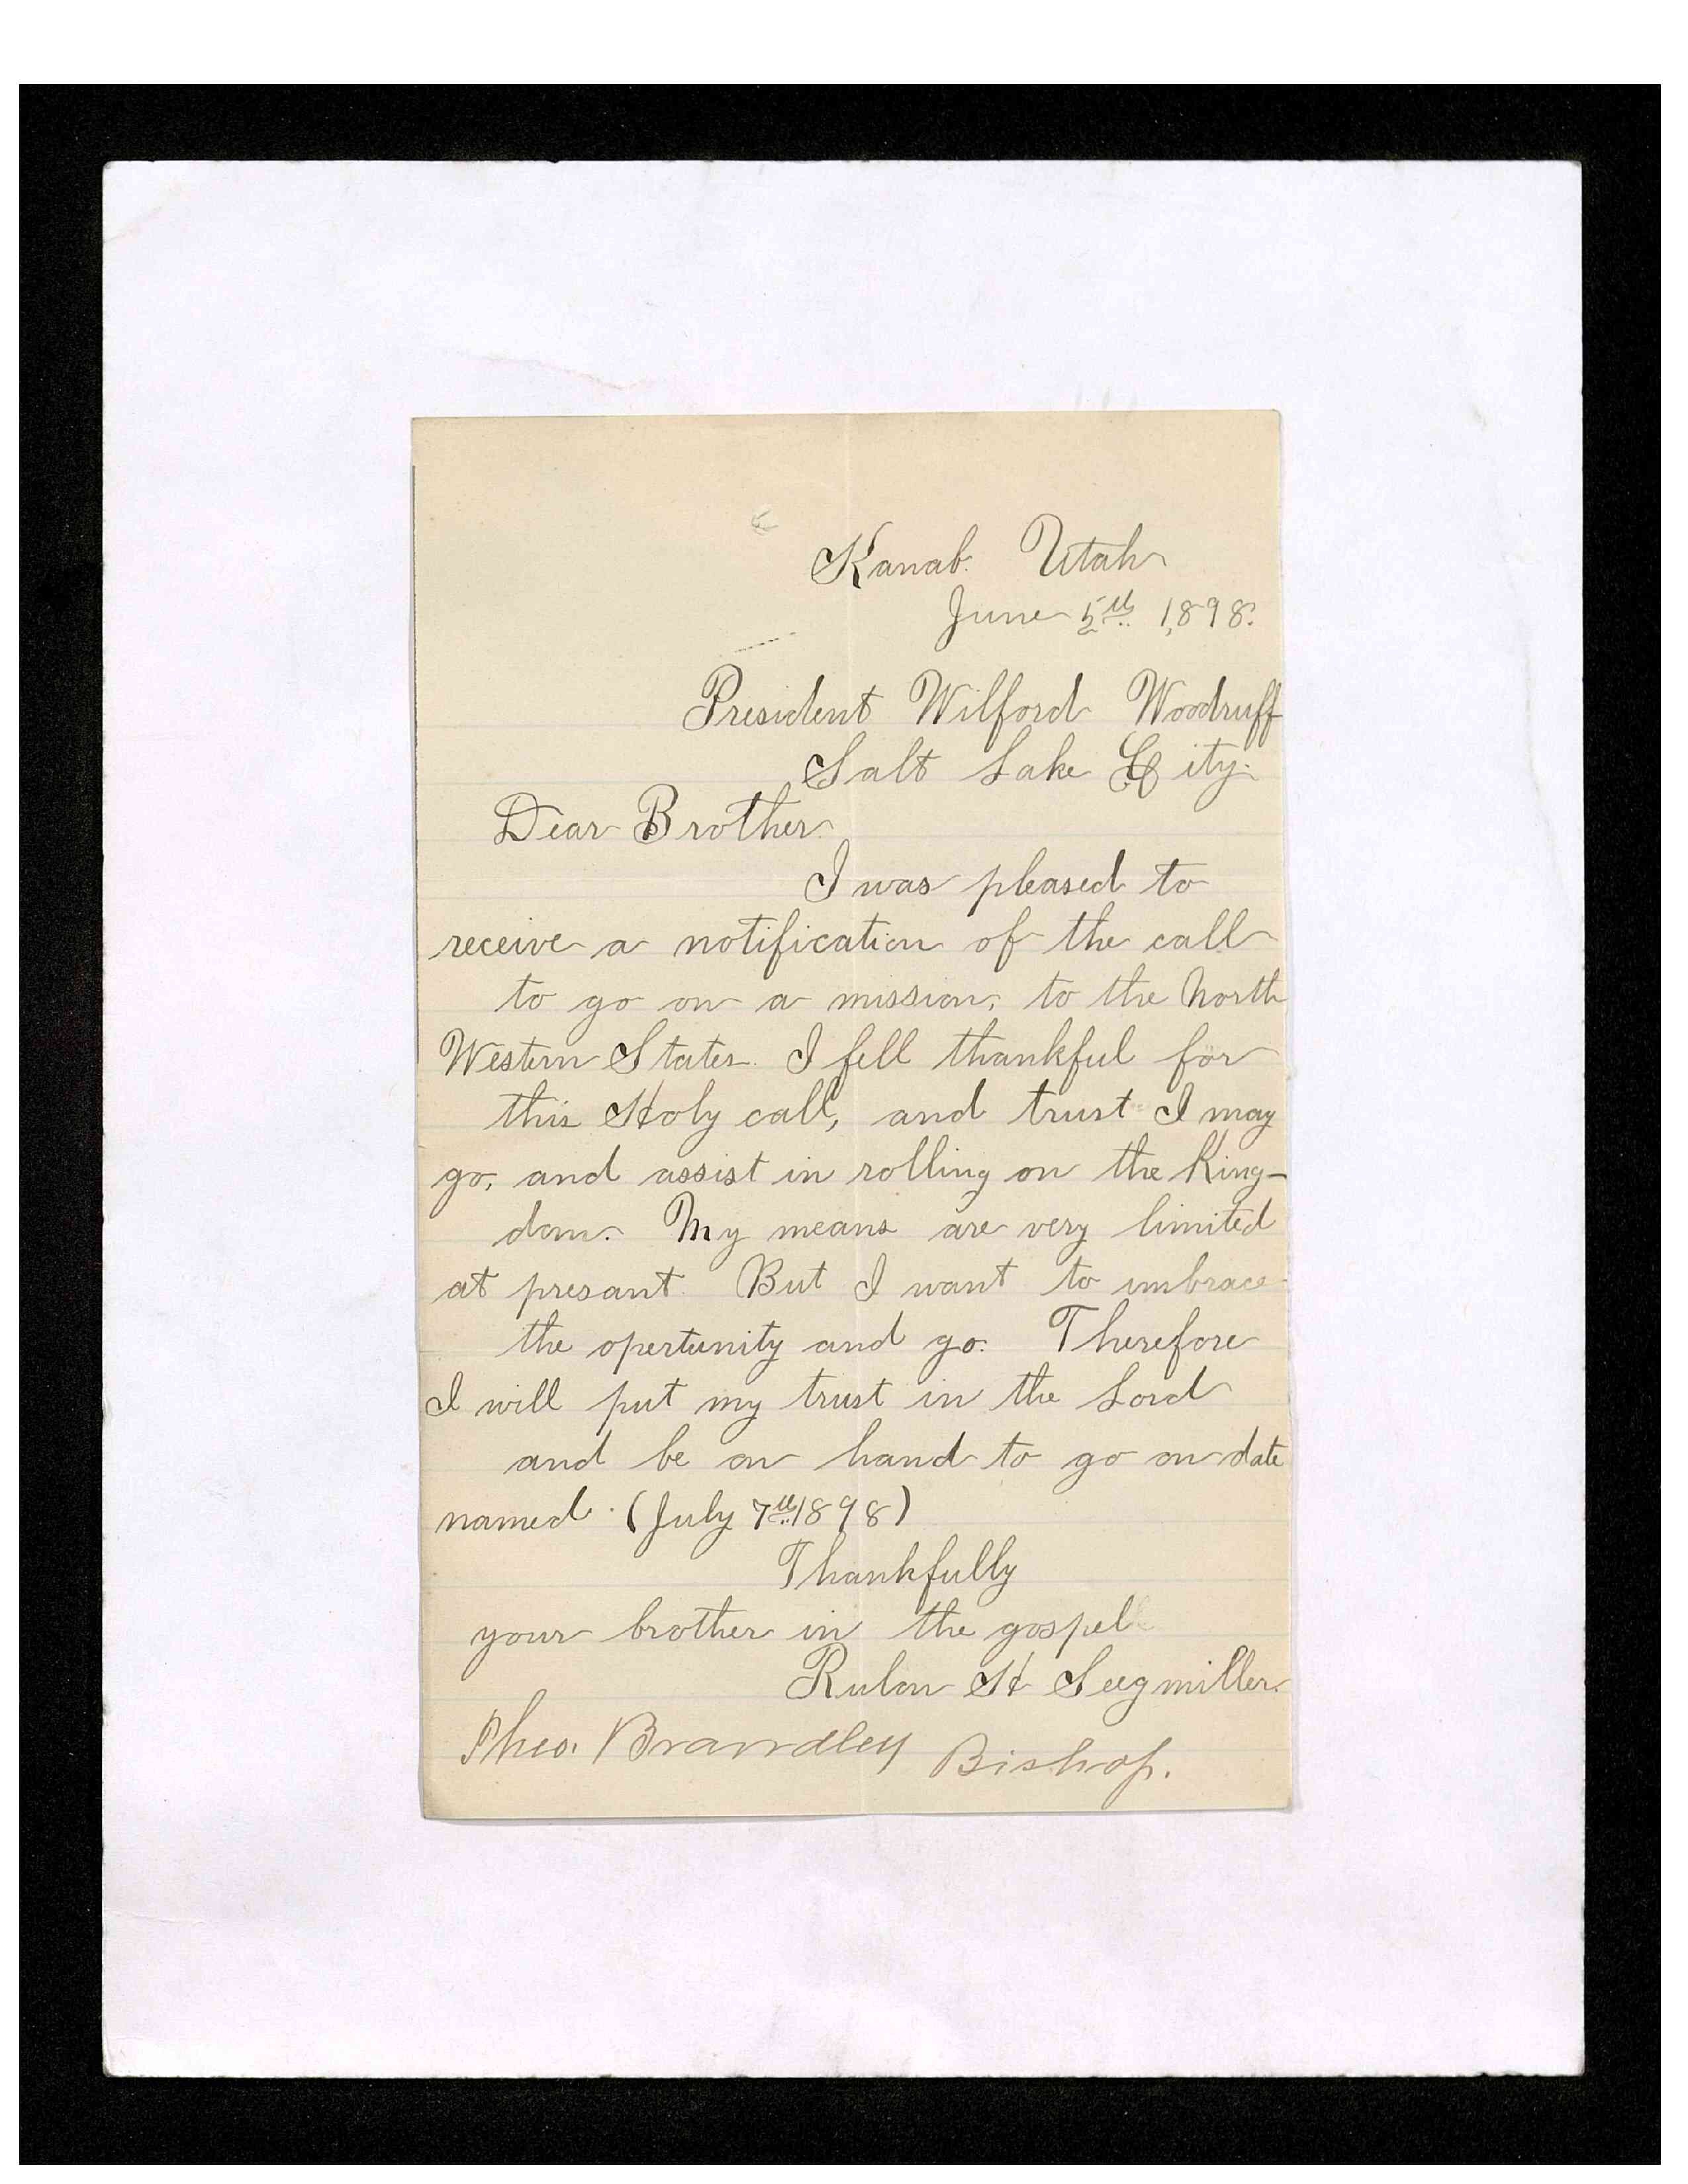 Kanab. Utah
June 5th 1898.
President Wilford Woodruff
Salt Lake City.
Dear Brother
I was pleased to
receive a notification of the call
to go on a mission, to the North
Western States. I fell thankful for
this Holy call, and trust I may
go, and assist in rolling on the King-
dom. My means are very limited
at presant. But I want to imbrace
the opertunity and go. Therefore
I will put my trust in the Lord
and be on hand to go on date
named. (July 7th 1898)
Thankfully
your brother in the gospel
Rulon H Seegmiller.
Theo. Brandley Bishop.